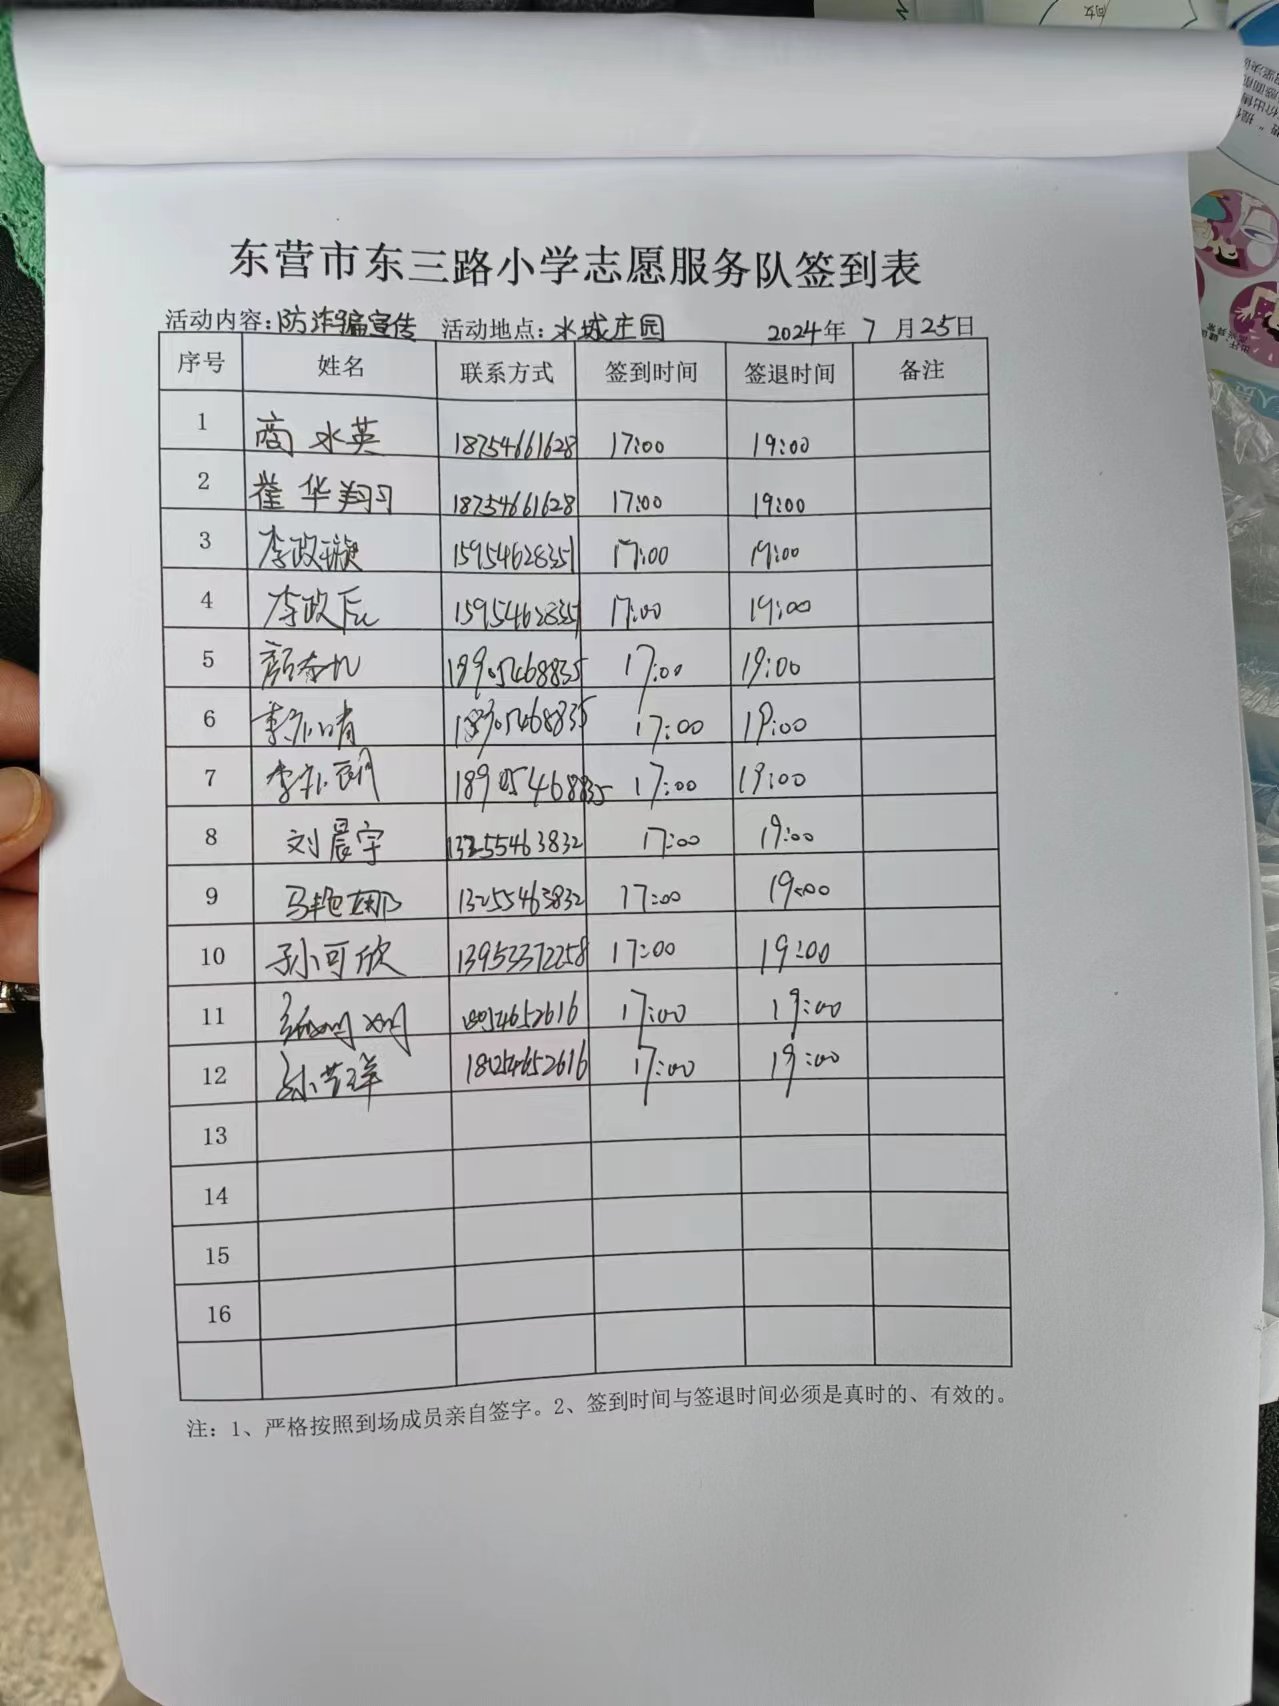 东营市东三路小学志愿服务队签到表
活动内容:防诈骗宣传 活动地点:水城庄园 2024年 7 月25日
序号 姓名 联系方式 签到时间 签退时间 备注
1 商水英 18754661628 17:00 19:00
2 崔华翔 18754661628 17:00 19:00
3 李政璇 15954628351 17:00 19:00
4 李政 15954628351 17:00 19:00
5 18905468835 17:00 19:00
6 18905468835 17:00 19:00
7 18905468835 17:00 19:00
8 刘晨宇 13255463832 17:00 19:00
9 马艳娜 13255463832 17:00 19:00
10 孙可欣 13953372258 17:00 19:00
11 17:00 19:00
12 18054652616 17:00 19:00
13
14
15
16
注：1、严格按照到场成员亲自签字。2、签到时间与签退时间必须是真时的、有效的。